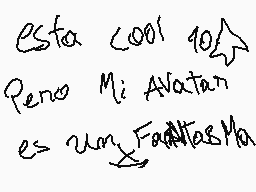 esta cool 10
Pero Mi AVatar
es un FantasMa